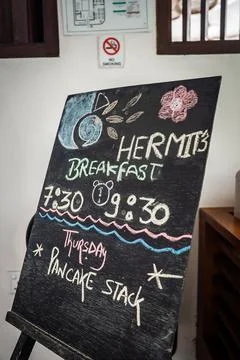 NO
SMOKING
HERMIT'S
BREAKFAST
7:30 9:30
Thursday
* PANCAKE STACK *